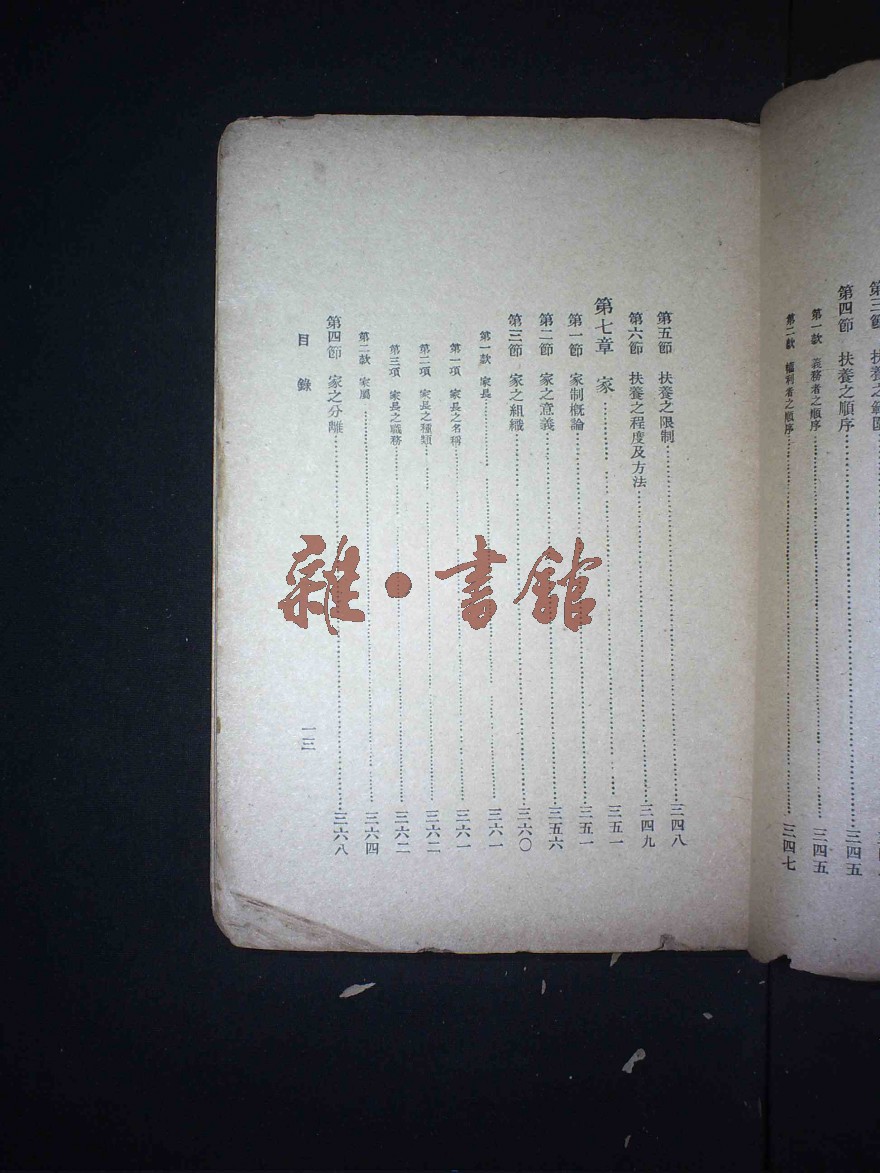 第四節　扶養之順序……三四五
第一款　義務者之順序……三四五
第二款　權利者之順序……三四七
第五節　扶養之限制……三四八
第六節　扶養之程度及方法……三四九
第七章　家……三五一
第一節　家制概論……三五一
第二節　家之意義……三五六
第三節　家之組織……三六〇
第一款　家長……三六一
第一項　家長之名稱……三六一
第二項　家長之種類……三六二
第三項　家長之職務……三六二
第二款　家屬……三六四
第四節　家之分離……三六八
目錄　一三
雜・書館